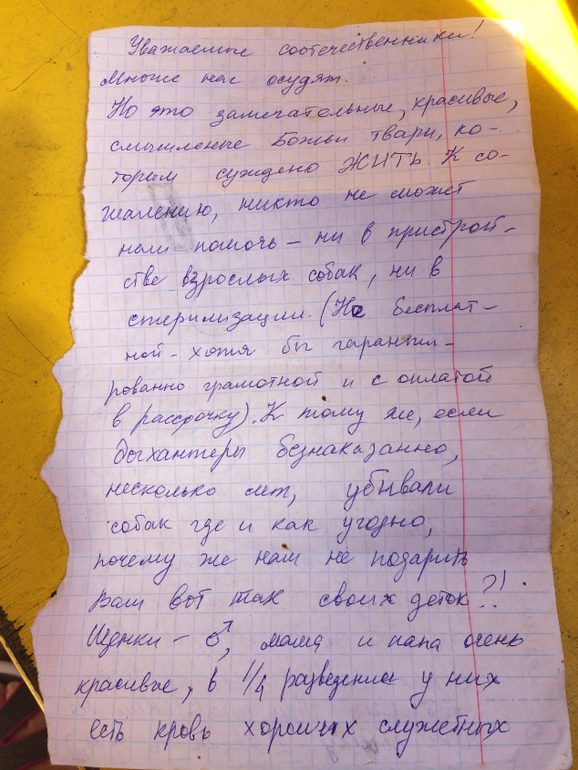 Уважаемые соотечественники!
Многие нас осудят.
Но это замечательные, красивые,
смышленые Божьи твари, ко-
торым суждено ЖИТЬ. К со-
жалению, никто не может
нам помочь – ни в пристрой-
стве взрослых собак, ни в
стерилизации. (Не бесплат-
ной - хотя бы гаранти-
рованно грамотной и с оплатой
в рассрочку). К тому же, если
дыхантеры безнаказанно,
несколько лет, убивали
собак где и как угодно,
почему же нам не подарить
Вам вот так своих деток?!
Щенки – ♂, мама и папа очень
красивые, в 1/4 разведении у них
есть кровь хороших служебных